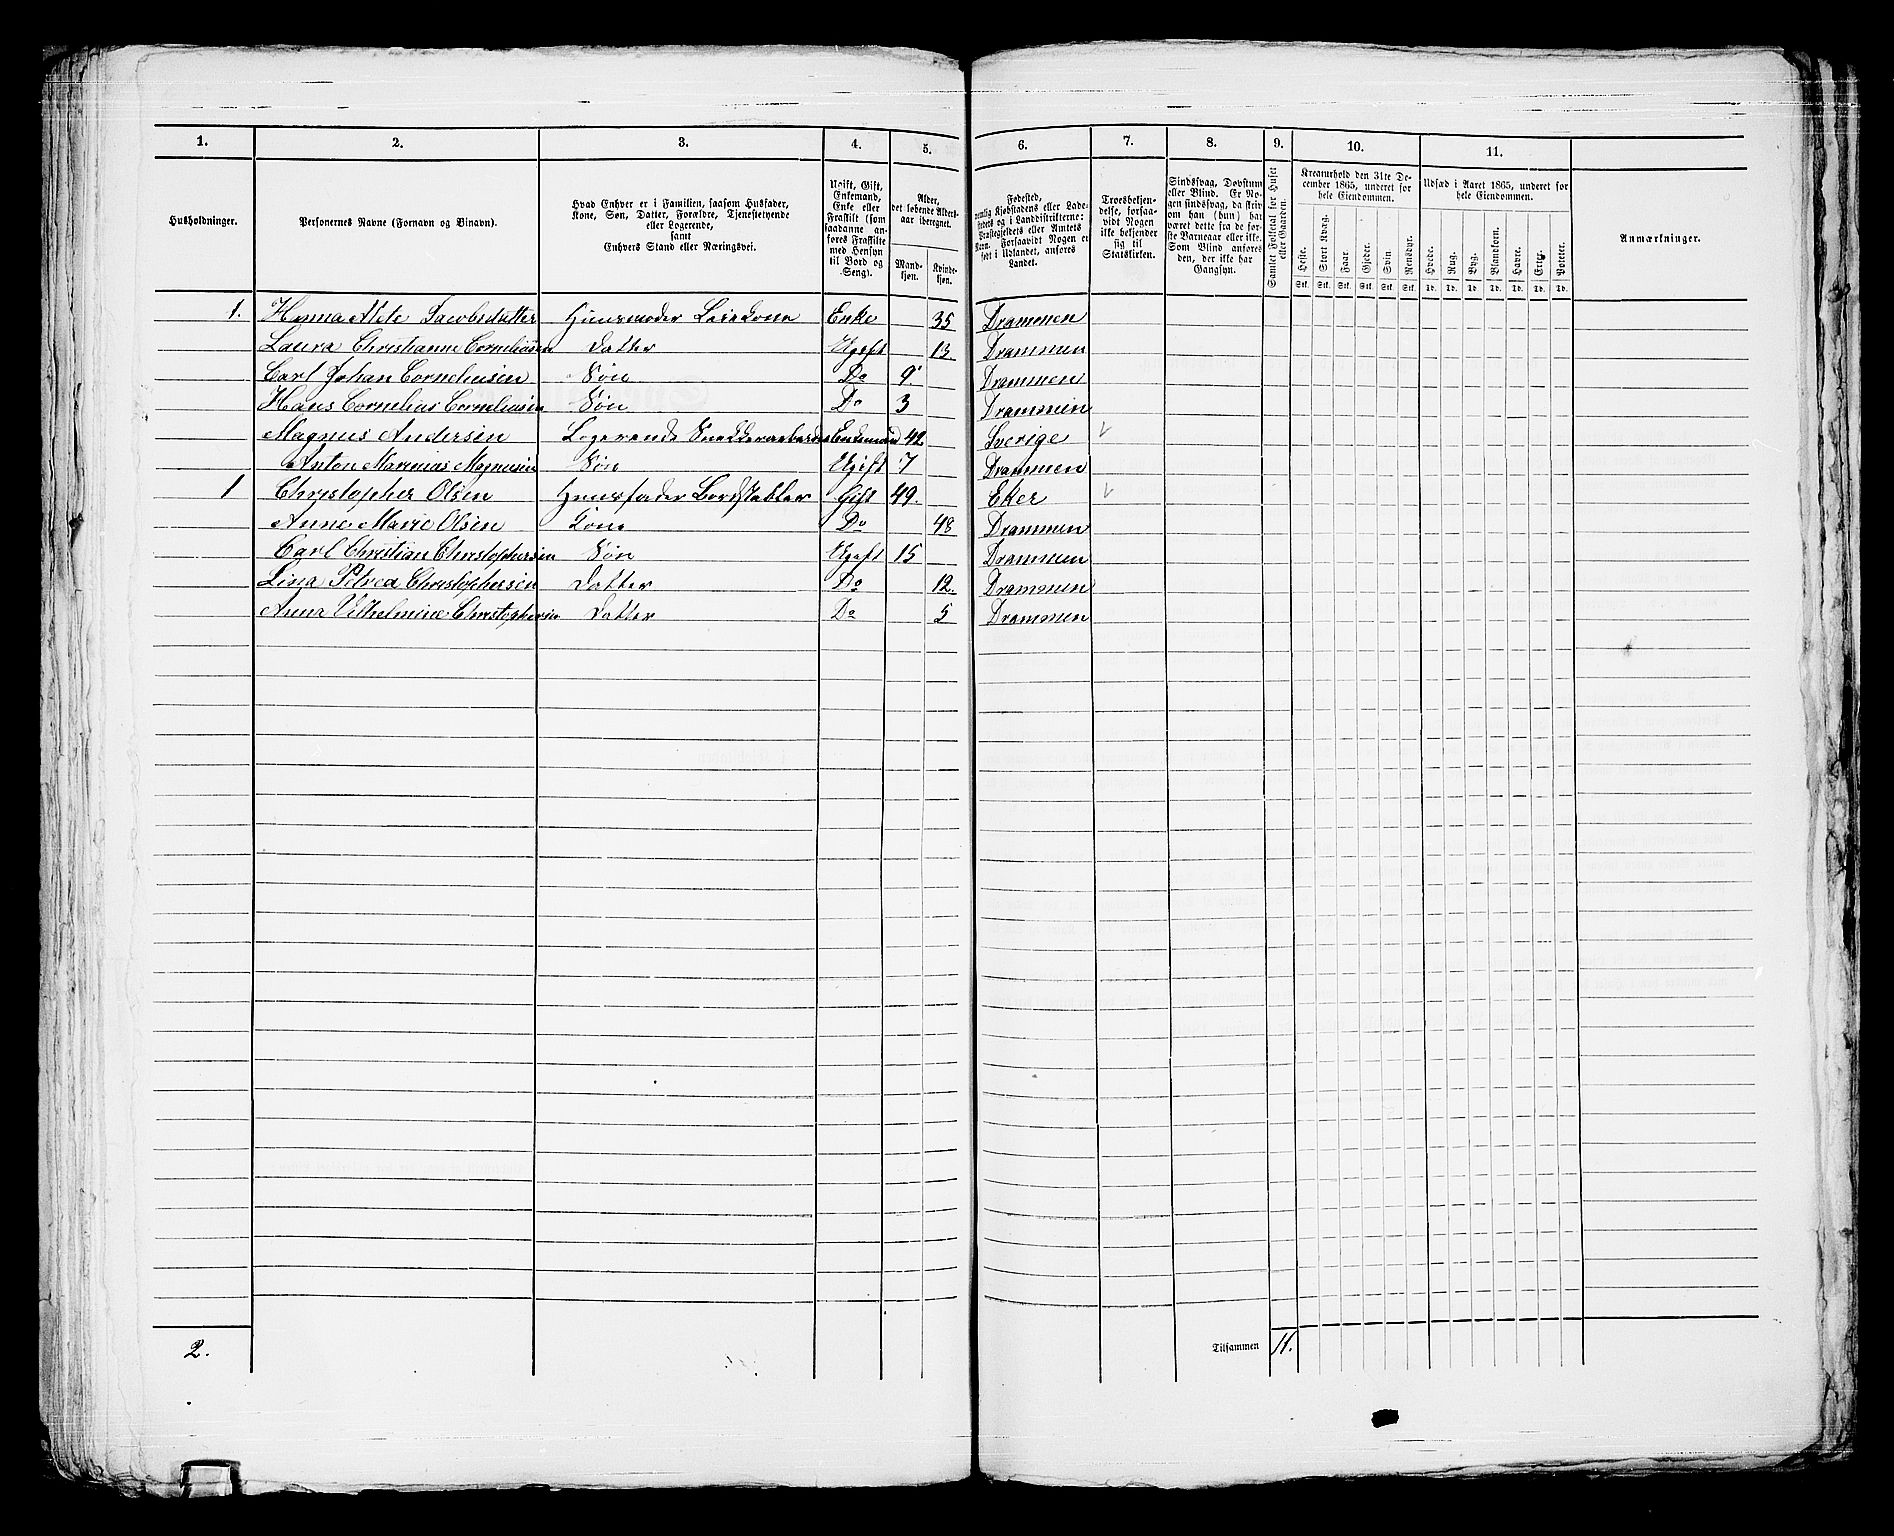 1. 2. 3. 4. 5. 6. 7. 8. 9. 10. 11.
Husholdninger.
Personernes Navne (Fornavn og Binavn).
Hvad Enhver er i Familien, saasom Husfader,
Kone, Søn, Datter, Forældre, Tjenestetyende
eller Logerende,
samt
Enhvers Stand eller Næringsvei.
Ugift, Gift,
Enkemand,
Enke eller
Fraskilt (som
saadanne an-
føres Fraskilte
med Hensyn
til Bord og
Seng).
Alder,
det løbende Alders-
aar iberegnet.
Mand-
kjøn.
Kvinde-
kjøn.
Fødested,
nemlig Kjøbstadens eller Lade-
stedets og i Landdistrikterne:
Præstegjeldets eller Amtets
Navn. Forsaavidt Nogen er
født i Udlandet, anføres
Landet.
Troesbekjen-
delse, forsaa-
vidt Nogen
ikke bekjender
sig til
Statskirken.
Sindssvag, Døvstum
eller Blind. Er No-
gen sindssvag, da skri-
ves om han (hun) har
været dette fra de før-
ste Barneaar eller ikke.
Som Blind anføres
den, der ikke har
Gangsyn.
Samlet Folketal for Huset
eller Gaarden.
Kreaturhold den 31te De-
cember 1865, underet for
hele Eiendommen.
Heste. Stort Kvæg. Faar. Gjeder. Svin Rensdyr.
Stk. Stk. Stk. Stk. Stk. Stk.
Udsæd i Aaret 1865, underet for
hele Eiendommen.
Hvede. Rug. Byg. Blandkorn. Havre. Erter. Poteter.
Td. Td. Td. Td. Td. Td. Td.
Anmærkninger.
1. Hanna Alete Jacobsdatter Huusmoder Enke 35 Drammen
Laura Christianne Corneliusen Datter Ugift 13 Drammen
Carl Johan Corneliusen Søn Do 9 Drammen
Hans Cornelius Corneliusen Søn Do 3 Drammen
Magnus Andersen Logerende Enkemand 42 Sverige
Anton Marenius Magnusen Søn Ugift 7 Drammen
1 Christopher Olsen Huusfader Bordstabler Gift 49. Eker
Anne Marie Olsen Kone Do 48 Drammen
Carl Christian Christophersen Søn Ugift 15 Drammen
Lina Petrea Christophersen Datter Do 12. Drammen
Anna Vilhelmine Christophersen Datter Do 5 Drammen
2. Tilsammen 11.